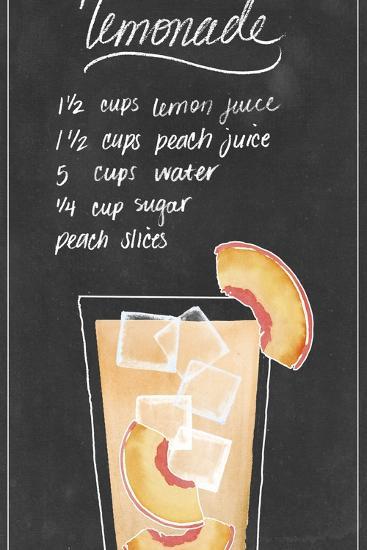 lemonade
1 1/2 cups lemon juice
1 1/2 cups peach juice
5 cups water
1/4 cup sugar
peach slices